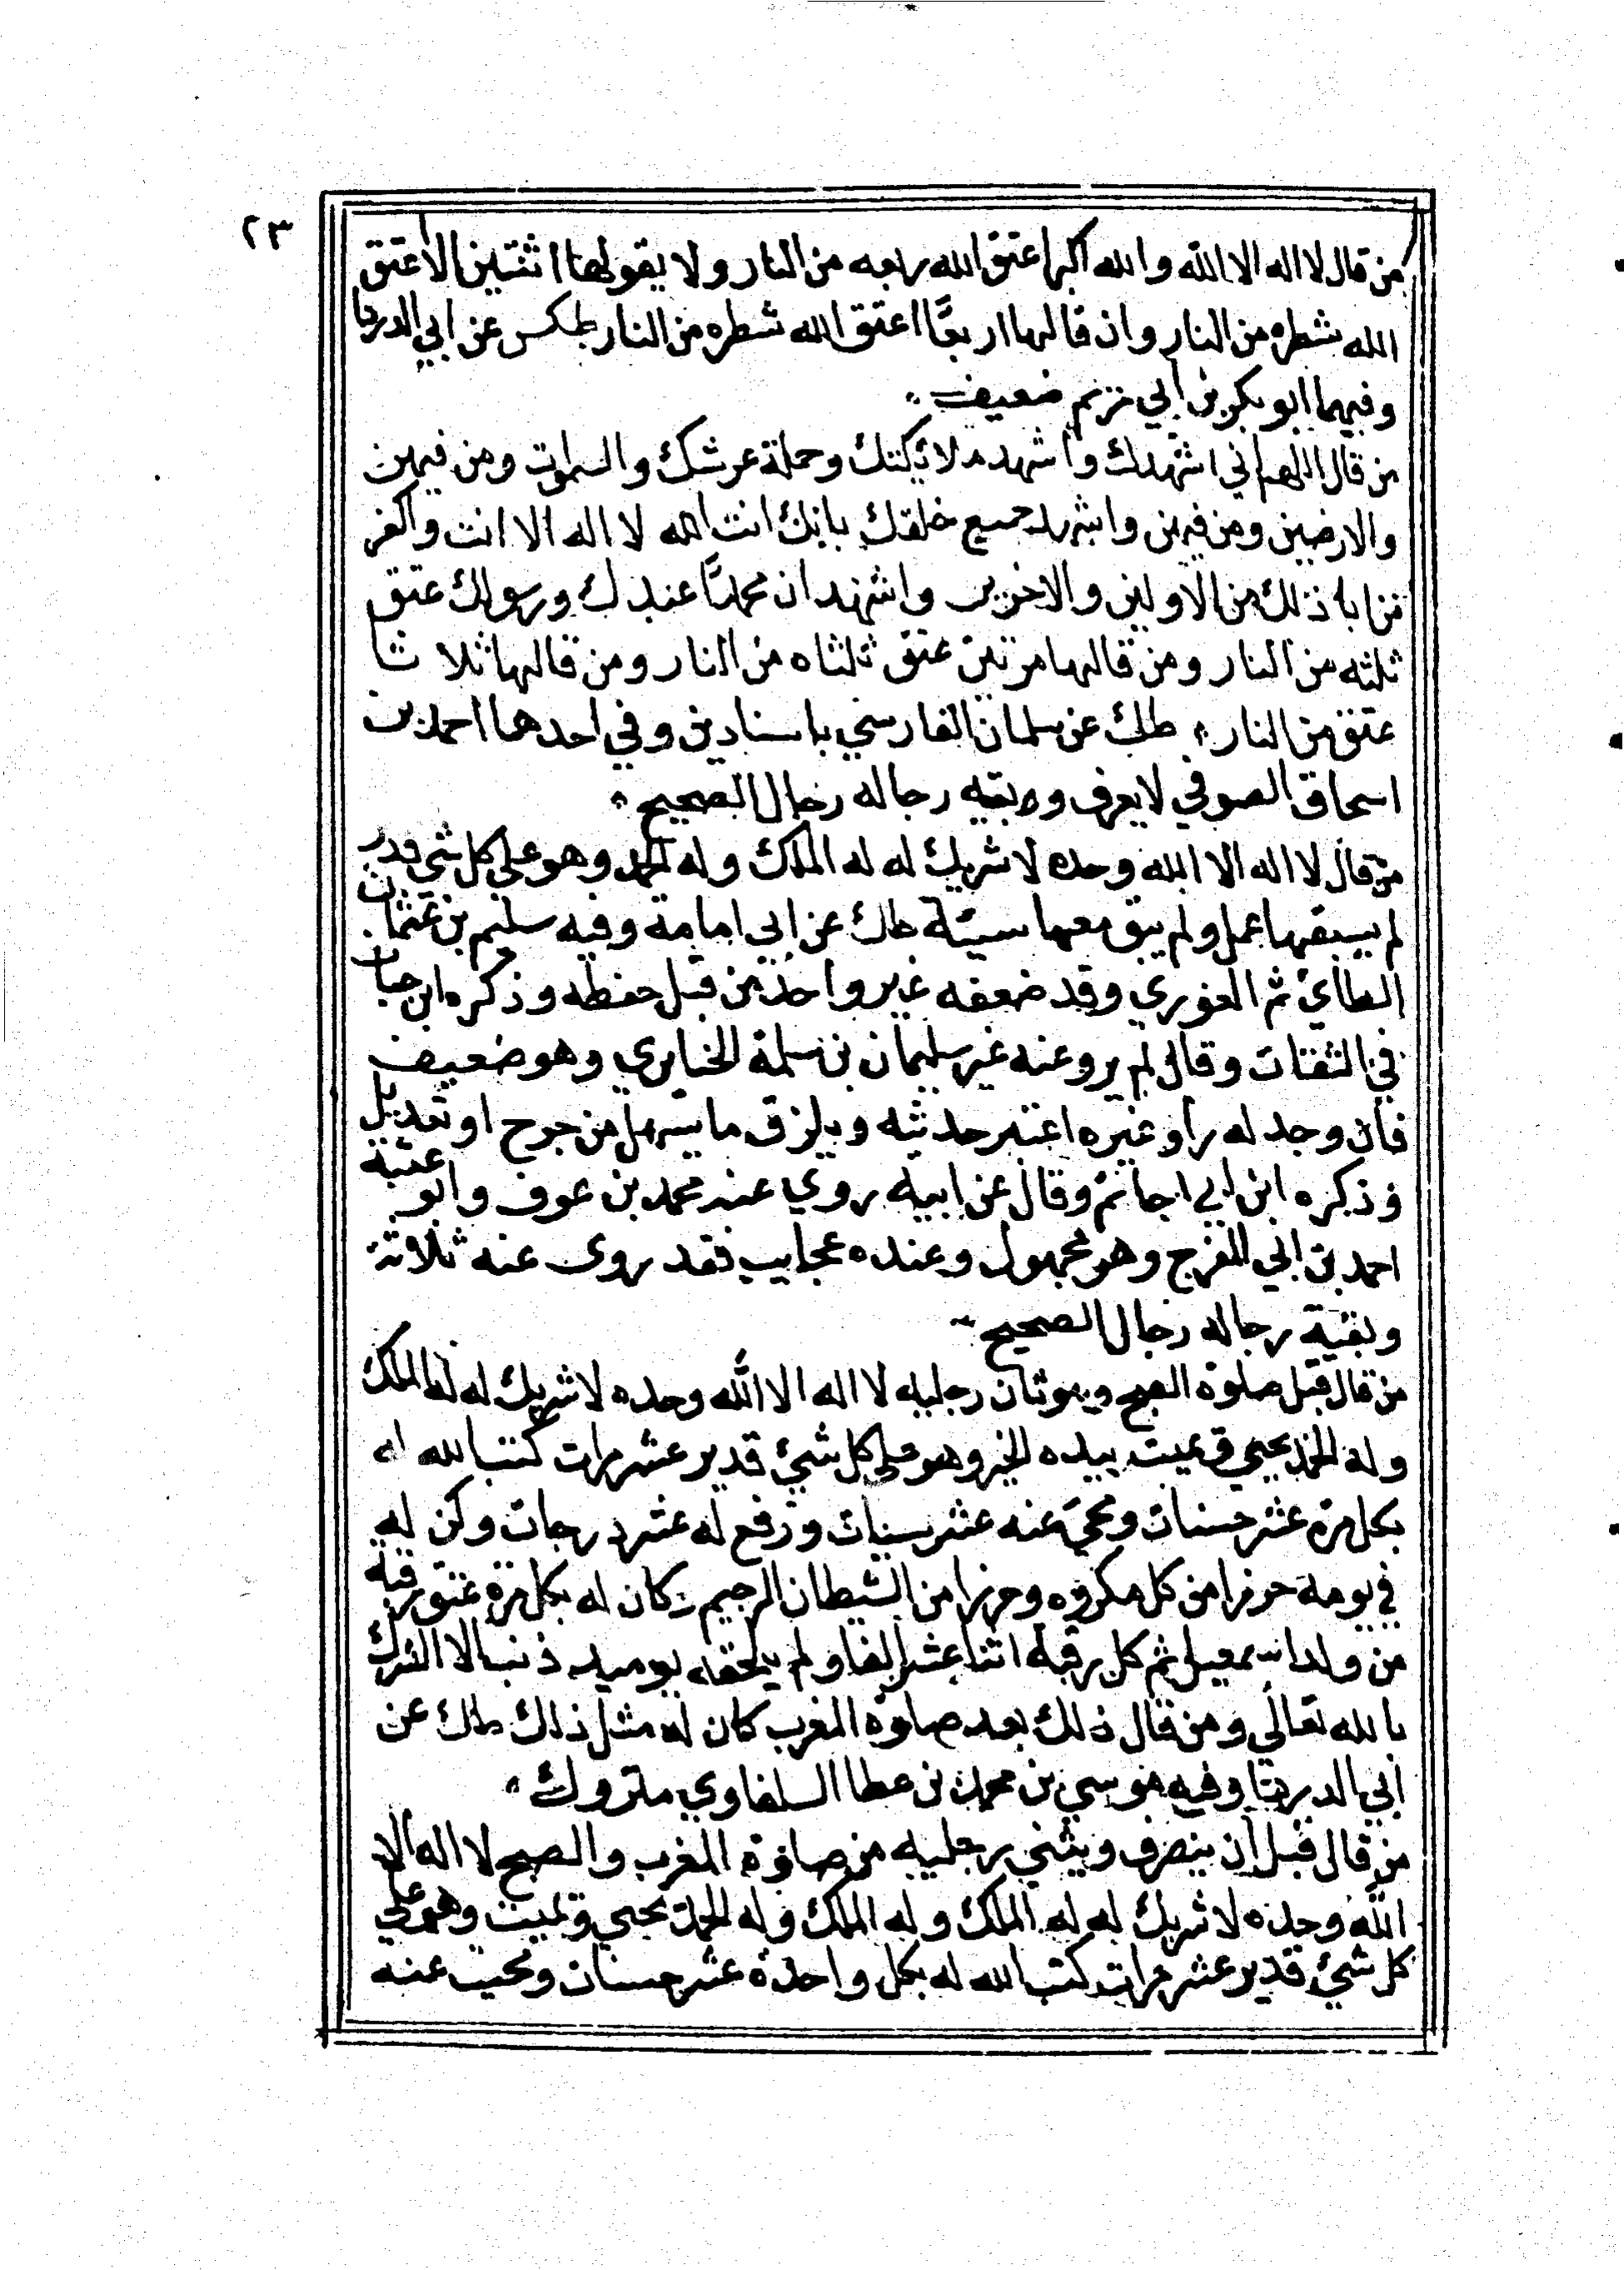 ٢٣
من قال لا اله الا الله والله اكبر اعتق الله ربعه من النار ولا يقولها اثنتين الا اعتق
الله شطره من النار وان قالها اربعًا اعتق الله شطره من النار طكس عن ابي الدردا
وفيهما ابو بكر بن ابي مريم ضعيف
من قال اللهم اني اشهدك واشهد ملائكتك وحملة عرشك والسموات ومن فيهن
والارضين ومن فيهن واشهد جميع خلقك بانك انت الله لا اله الا انت واكفر
من ابا ذلك من الاولين والاخرين واشهد ان محمدًا عبدك ورسولك عتق
ثلثه من النار ومن قالها مرتين عتق ثلثاه من النار ومن قالها ثلاثا
عتق من النار طك عن سلمان الفارسي باسنادين وفي احدهما احمد بن
اسحاق الصوفي لا يعرف وبقيه رجاله رجال الصحيح
من قال لا اله الا الله وحده لا شريك له له الملك وله الحمد وهو على كل شي قدير
لم يسبقها عمل ولم يبق معها سيئة طك عن ابي امامة وفيه سليم بن عثمان
الطائي ثم الفوزي وقد ضعفه غير واحد من قبل حفظه وذكره ابن حبان
في الثقات وقال لم يرو عنه غير سليمان بن سلمة الخبايري وهو ضعيف
فان وجد له راو غيره اعتبر حديثه ويلزق ما يتهل من جرح او تعديل
وذكره ابن ابي حاتم وقال عن ابيه روي عنه محمد بن عوف وابو عتبة
احمد بن ابي الفرج وهو مجهول وعنده عجايب فقد روى عنه ثلاثة
وبقية رجاله رجال الصحيح
من قال قبل صلوة الصبح وهو ثان رجليه لا اله الا الله وحده لا شريك له له الملك
وله الحمد يحيي ويميت بيده الخير وهو على كل شئ قدير عشر مرات كتب الله له
بكل مرة عشر حسنات ومحي عنه عشر سيئات ورفع له عشر درجات وكن له
في يومه حرزا من كل مكروه وحرزا من الشيطان الرجيم وكان له بكل مرة عتق رقبة
من ولد اسمعيل ثم كل رقبة اثنا عشر الفا ولم يلحقه يوميد ذنب الا الشرك
بالله تعالى ومن قال ذلك بعد صلوة المغرب كان له مثل ذلك طك عن
ابي الدردا وفيه موسى بن محمد بن عطا البلقاوي متروك
من قال قبل ان ينصرف ويثني رجليه من صلوة المغرب والصبح لا اله الا
الله وحده لا شريك له له الملك وله الملك وله الحمد يحيي ويميت وهو على
كل شئ قدير عشر مرات كتب الله له بكل واحدة عشر حسنات ومحيت عنه